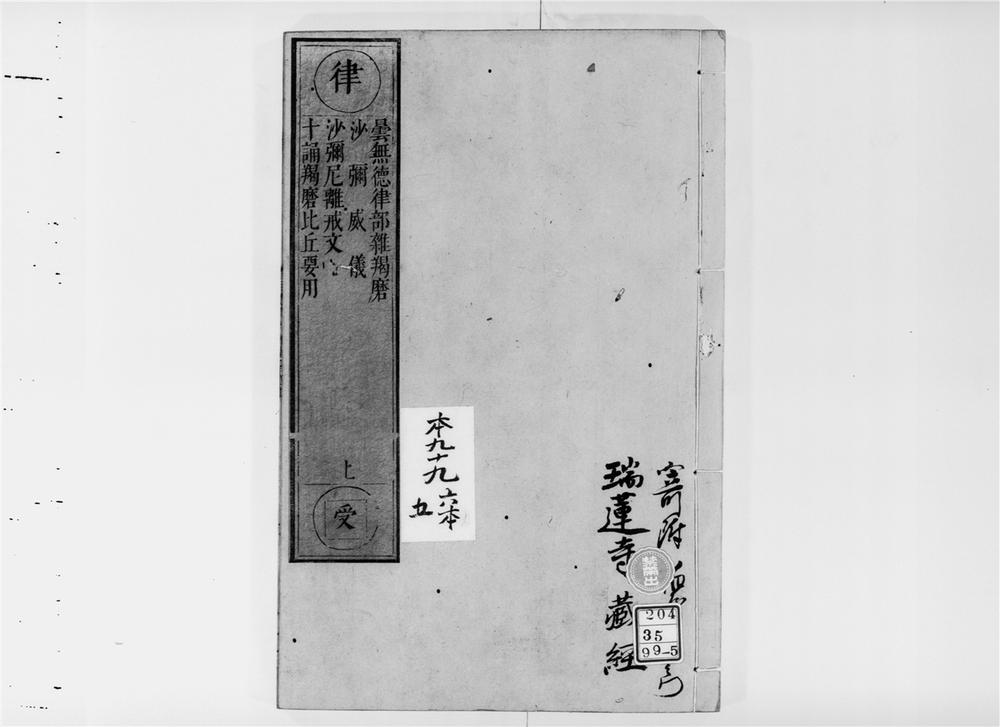 律
曇無德律部雜羯磨
沙彌威儀
沙彌尼離戒文
十誦羯磨比丘要用
上
受
本九十九
六本
五
寄附
瑞蓮寺藏經
禁帶出
204
35
99-5